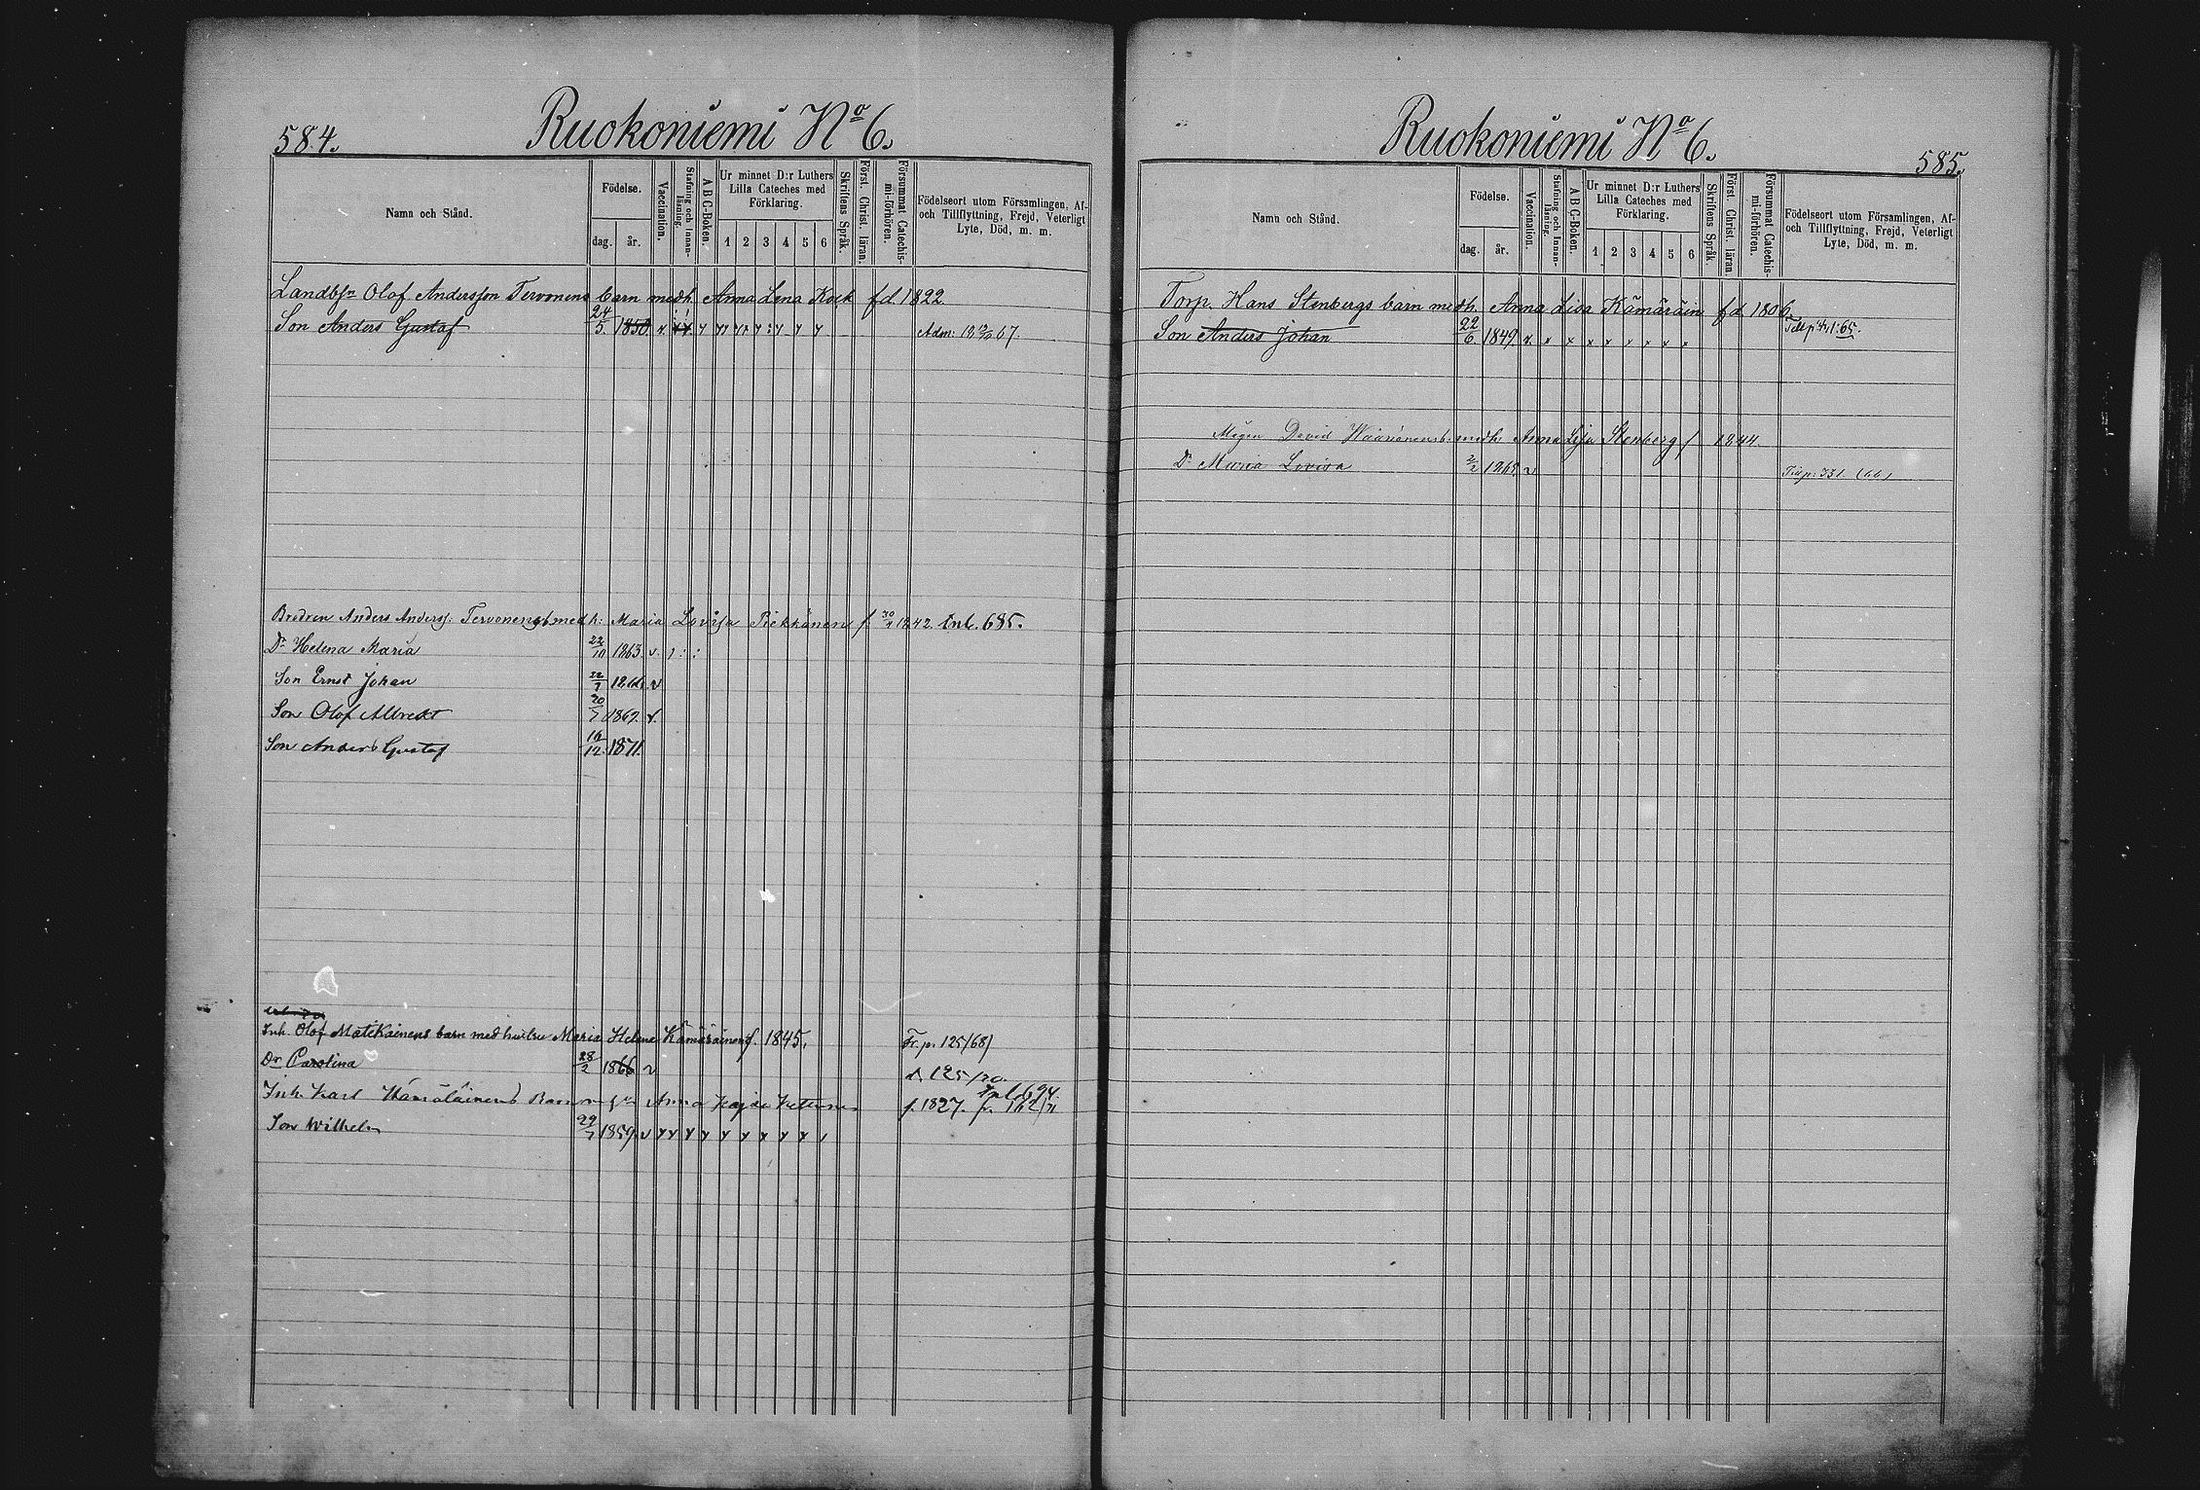 584.
Ruokoniemi No 6.
Namn och Stånd.
Födelse.
dag.
år.
Vaccination.
Stafning och Innan-läsning.
A B C-Boken.
Ur minnet D:r Luthers
Lilla Cateches med
Förklaring.
1 2 3 4 5 6
Skriftens Språk.
Först. Christ. läran.
Försummat Catechis-mi-förhören.
Födelseort utom Församlingen, Af-
och Tillflyttning, Frejd, Veterligt
Lyte, Död, m. m.
Landb:sn Olof Andersson Tervonens barn med h. Anna Lena Kock f.d 1822
Son Anders Gustaf 24/5 1850 Adm. 67.
Brodren Anders Anderss: Tervonens b med h: Maria Lovisa Pickkänen f. 1842. Inl. 685.
Dr Helena Maria 22/10 1863.
Son Ernst Johan
Son Olof Albrekt 20/7
Son Anders Gustaf 16/12 1871.
Inh. Olof Matikainens barn med hustru Maria Helena Kämäräinen f. 1845, Fr. p. 125/68)
Dr Carolina 28/2 1866 125/70.
Inh. Karl Hämäläinens Barn m Anna f. 1827. fr. 162/71
Son Wilhelm 29/7 1859.
Ruokoniemi No 6.
585.
Namn och Stånd.
Födelse.
dag.
år.
Vaccination.
Stafning och Innan-läsning.
A B C-Boken.
Ur minnet D:r Luthers
Lilla Cateches med
Förklaring.
1 2 3 4 5 6
Skriftens Språk.
Först. Christ. läran.
Försummat Catechis-mi-förhören.
Födelseort utom Församlingen, Af-
och Tillflyttning, Frejd, Veterligt
Lyte, Död, m. m.
Torp. Hans Stenbergs barn med h. Anna Lisa Kämäräin f.d. 1806.
Son Anders Johan 22/6 1849 65.
David b. med h. Anna Lisa Stenberg f 1844
Dr Maria Lovisa 331 (66)